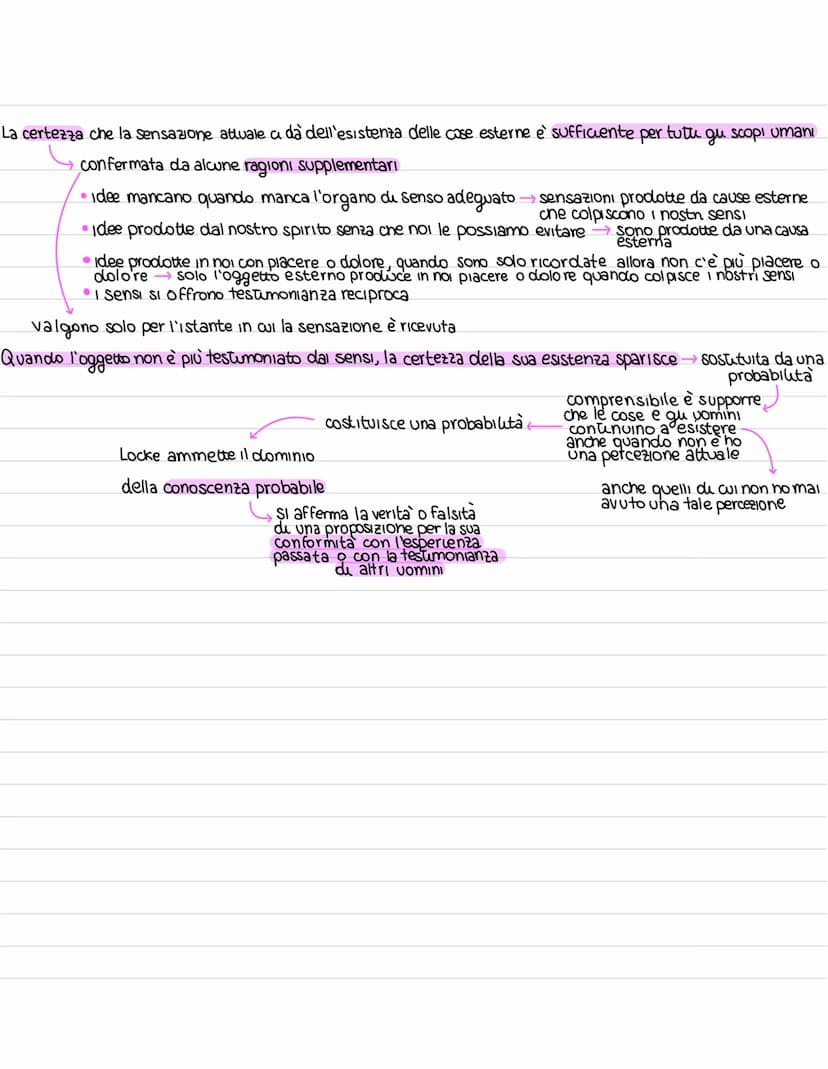 La certezza che la sensazione attuale ci dà dell'esistenza delle cose esterne è sufficiente per tutti gli scopi umani
→ confermata da alcune ragioni supplementari
• idee mancano quando manca l'organo di senso adeguato → sensazioni prodotte da cause esterne
che colpiscono i nostri sensi
• idee prodotte dal nostro spirito senza che noi le possiamo evitare → sono prodotte da una causa
esterna
• idee prodotte in noi con piacere o dolore, quando sono solo ricordate allora non c'è più piacere o
dolore → solo l'oggetto esterno produce in noi piacere o dolore quando colpisce i nostri sensi
• i sensi si offrono testimonianza reciproca
valgono solo per l'istante in cui la sensazione è ricevuta
Quando l'oggetto non è più testimoniato dai sensi, la certezza della sua esistenza sparisce → sostituita da una
probabilità
comprensibile è supporre
che le cose e gli uomini
continuino a esistere
anche quando non e ho
una percezione attuale
costituisce una probabilità
Locke ammette il dominio
della conoscenza probabile
anche quelli di cui non ho mai
avuto una tale percezione
si afferma la verità o falsità
di una proposizione per la sua
conformità con l'esperienza
passata o con la testimonianza
di altri uomini